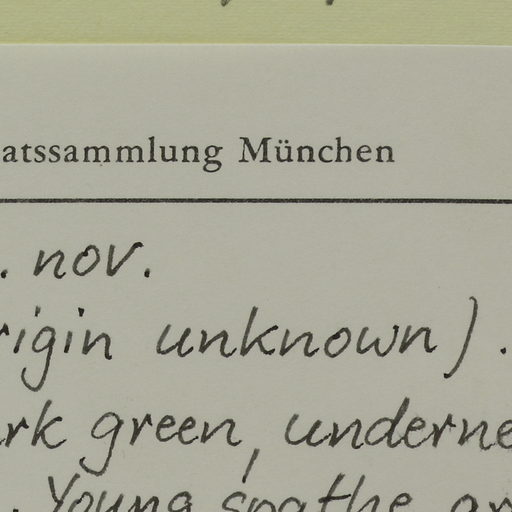 atssammlung München
. nov.
rigin unknown).
rk green, underne
. Young spathe gr